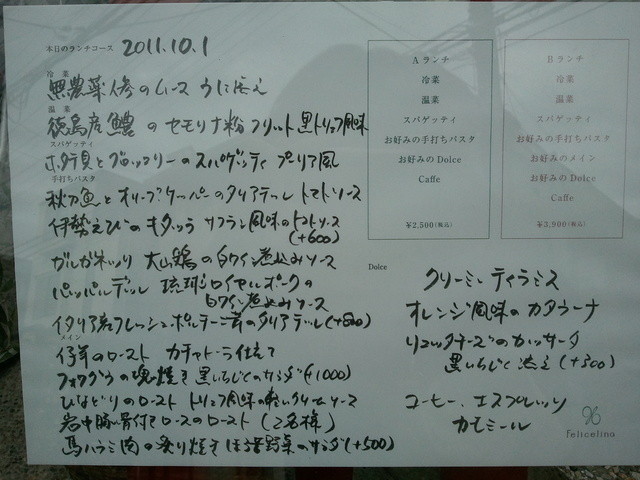 本日のランチコース 2011.10.1
冷菜
無農薬人参のムース うに添え
温菜
徳島産鱧のセモリナ粉フリット 黒トリュフ風味
スパゲッティ
ホタテ貝とブロッコリーのスパゲッティ プーリア風
手打ちパスタ
秋刀魚とオリーブ、ケッパーのタリアテッレ トマトソース
伊勢えびのキタッラ サフラン風味のトマトソース
(+600)
ガルガネッリ 大山鶏の白ワイン煮込みソース
パッパルデッレ 琉球ロイヤルポークの
白ワイン煮込みソース
イタリア産フレッシュポルチーニ茸のタリアテッレ(+800)
メイン
仔羊のロースト カチャトーラ仕立て
フォアグラの塊焼き 黒いちじくのサラダ(+1000)
ひなどりのロースト トリュフ風味の軽いクリームソース
岩中豚骨付ロースのロースト (2名様)
馬ハラミ肉の炙り焼き ほろ苦野菜のサラダ(+500)
Aランチ
冷菜
温菜
スパゲッティ
お好みの手打ちパスタ
お好みのDolce
Caffe
¥2,500(税込)
Bランチ
冷菜
温菜
スパゲッティ
お好みの手打ちパスタ
お好みのメイン
お好みのDolce
Caffe
¥3,900(税込)
Dolce
クリーミーティラミス
オレンジ風味のカタラーナ
リコッタチーズのカッサータ
黒いちじく添え(+300)
コーヒー、エスプレッソ
カモミール
Felicelina